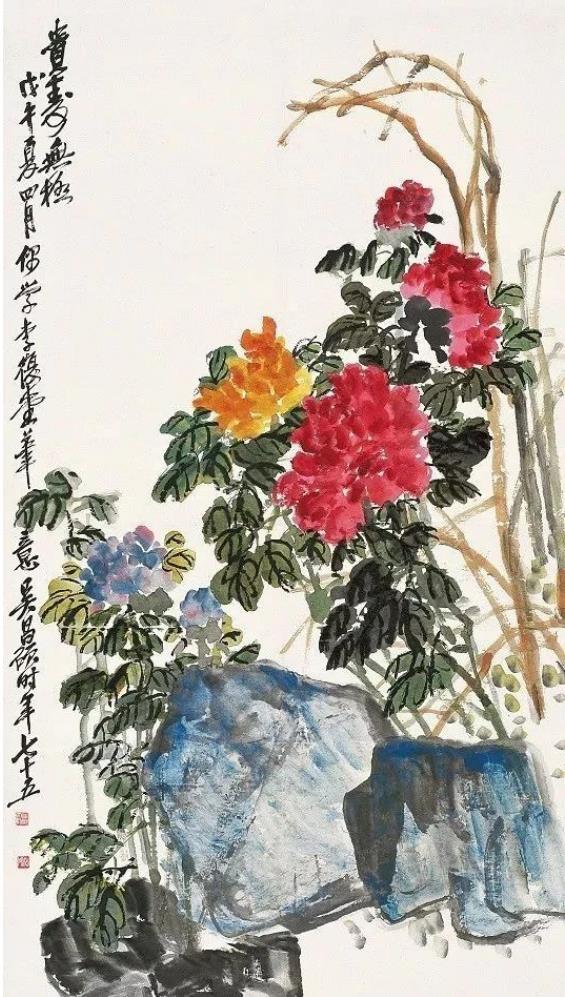 貴壽無極
戊午夏四月偶學李復堂筆意吳昌碩時年七十五